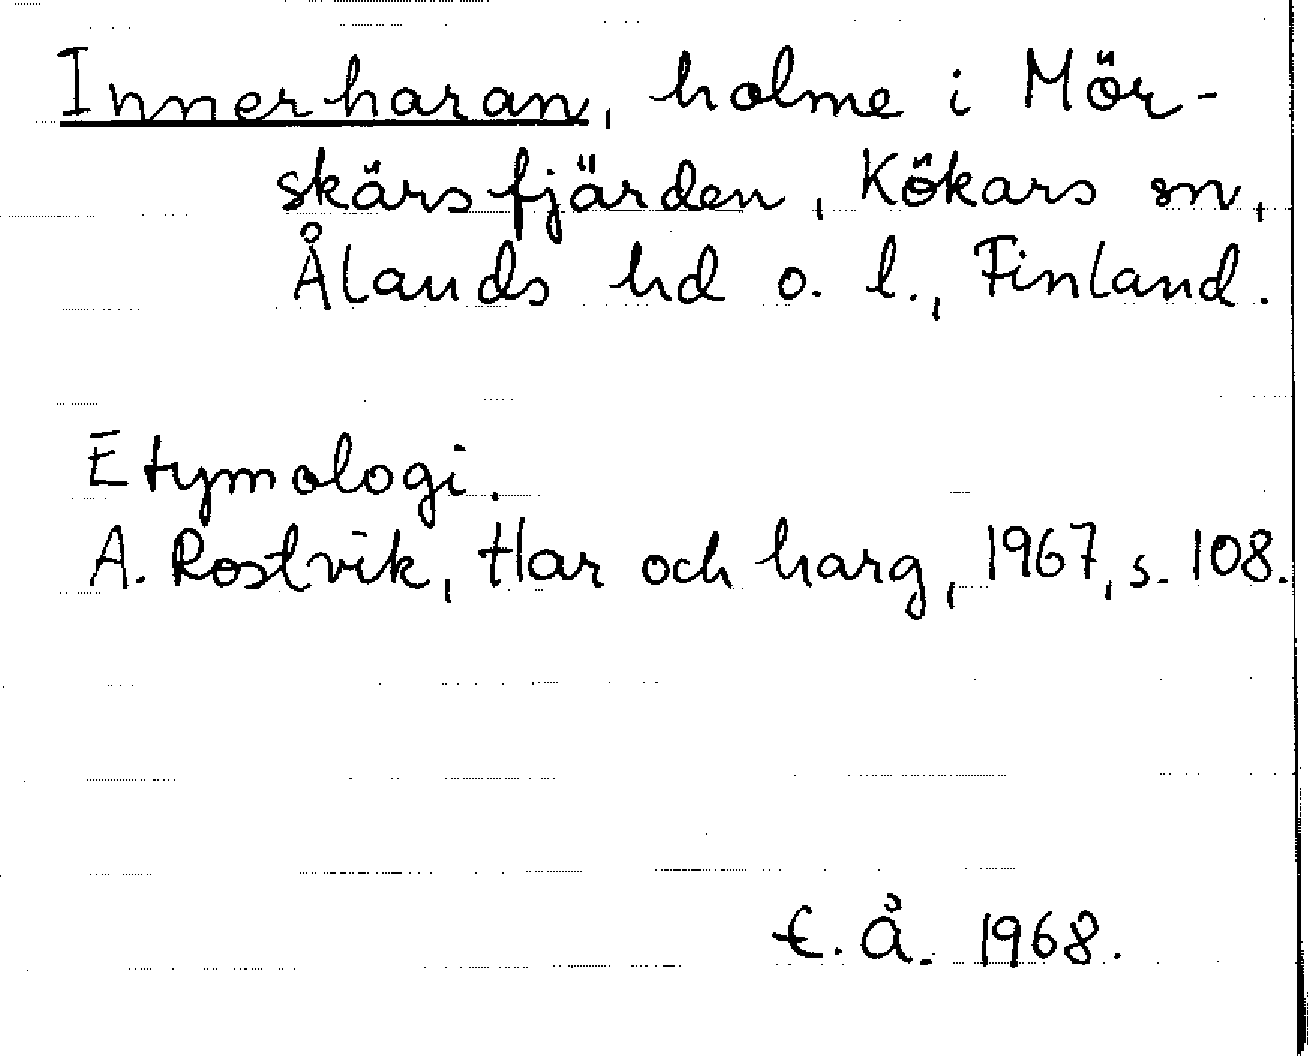 Innerharan, holme i Mör-
skärsfjärden, Kökars sn,
Ålands hd o. l., Finland.
Etymologi.
A. Rostvik, Har och harg, 1967, s. 108.
E. Å. 1968.